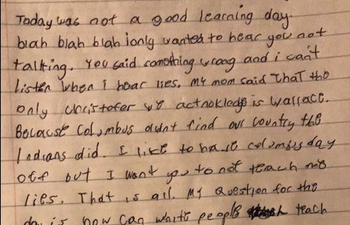 Today was not a good learning day.
blah blah blah i only wanted to hear you not
talking. You said something wrong and i can't
listen when i hear lies. My mom said that the
only christofer we acknoledg is wallace.
Because Columbus didnt find our country the
Indians did. I like to have columbus day
off but I want you to not teach me
lies. That is all. My question for the
day is how can white people teach